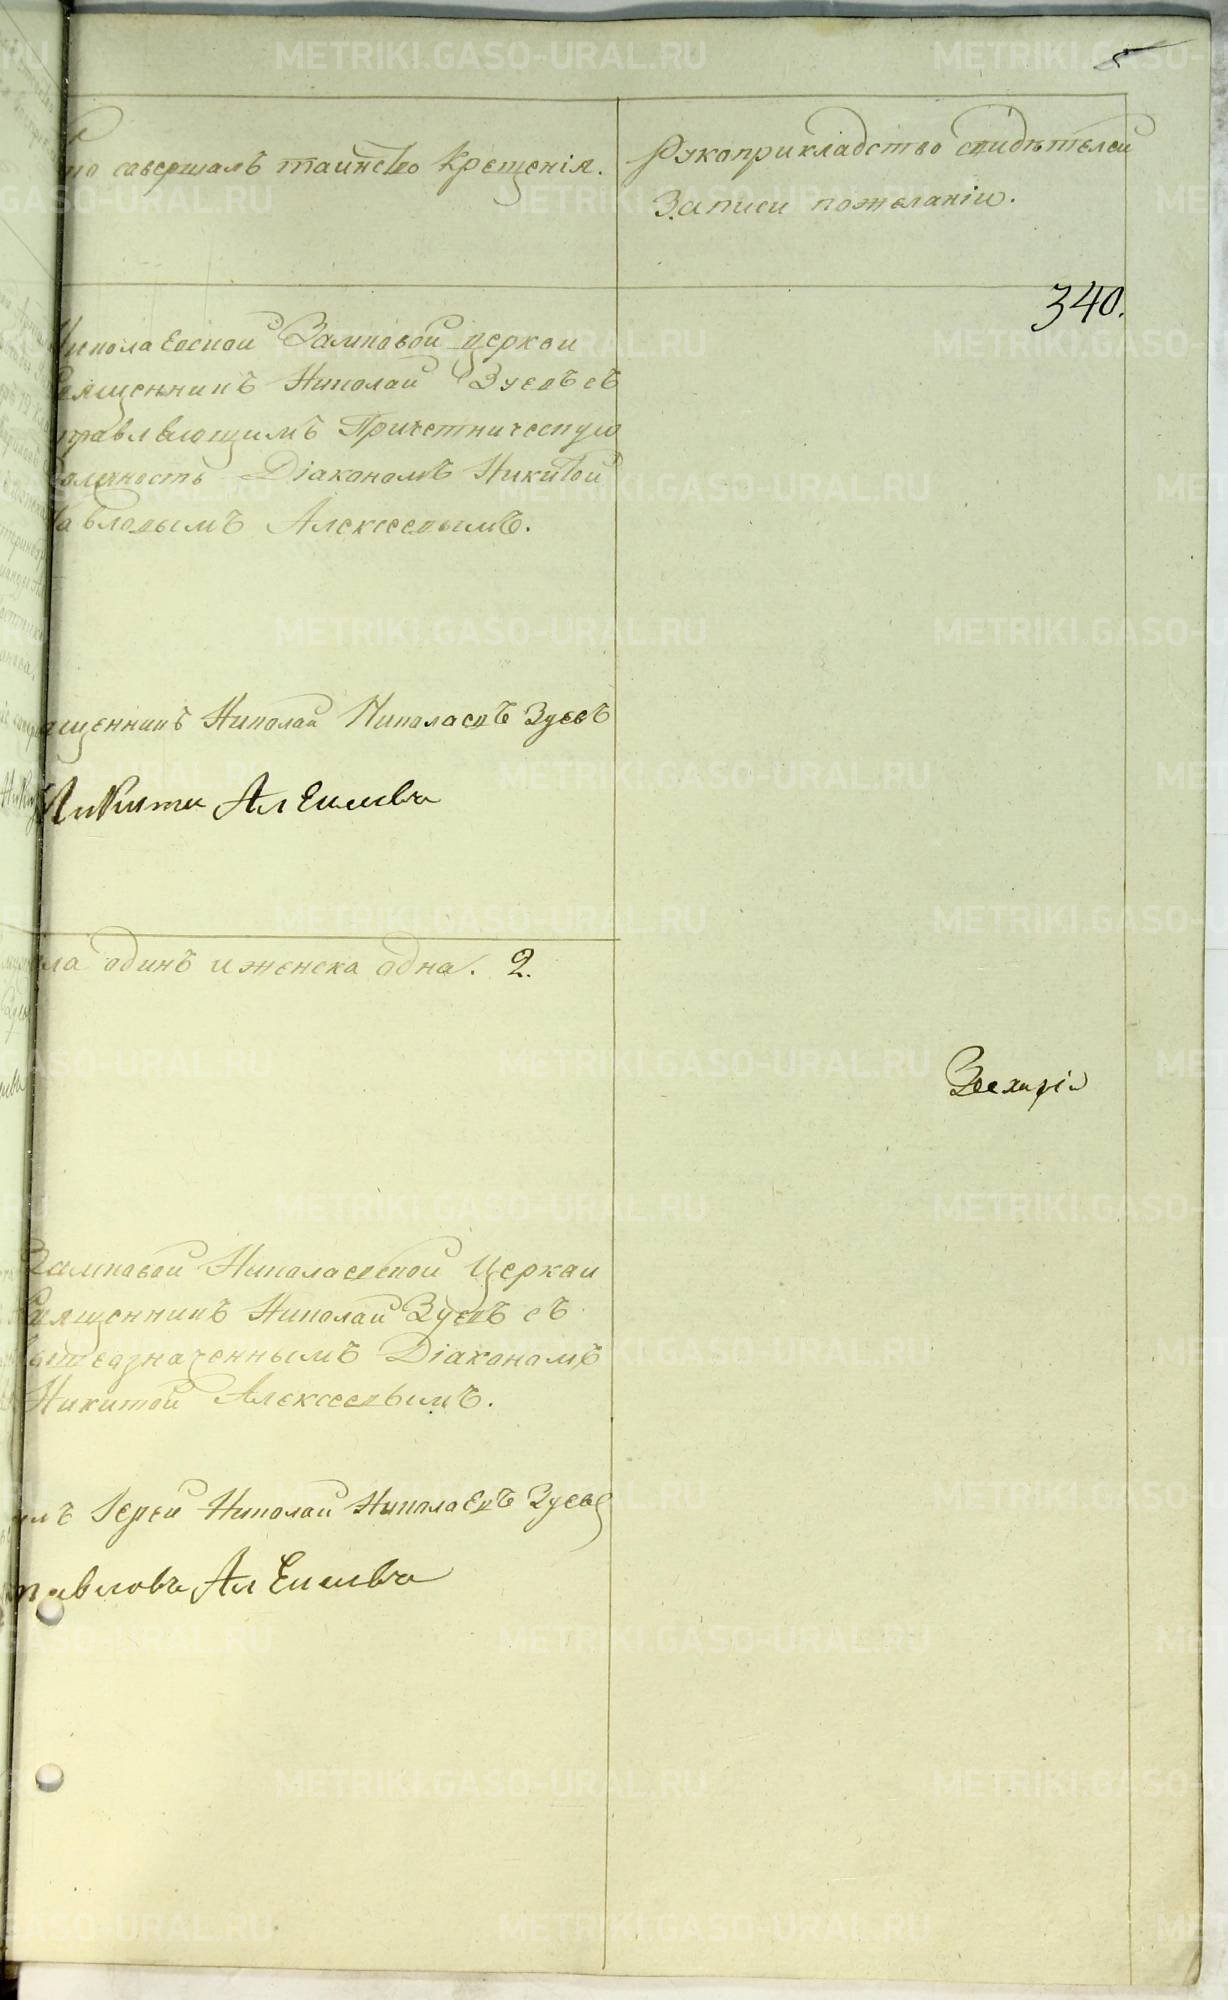 5
то совершалъ таинство Крещенія.
Рукоприкладство свидѣтелей
записи по желанію.
340.
Николаевской Замковой церкви
Священникъ Николай Зуевъ съ
исправляющимъ Причетническую
должность Діакономъ Никитой
Павловымъ Алексеевымъ.
Священникъ Николай Николаевъ Зуевъ
Никита Алексеевъ
ла одинъ и женска одна. 2.
Замковой Николаевской Церкви
Священникъ Николай Зуевъ съ
вышеозначеннымъ Діакономъ
Никитой Алексеевымъ.
Іерей Николай Николаевъ Зуевъ
Павловъ Алексеевъ
METRIKI.GASO-URAL.RU